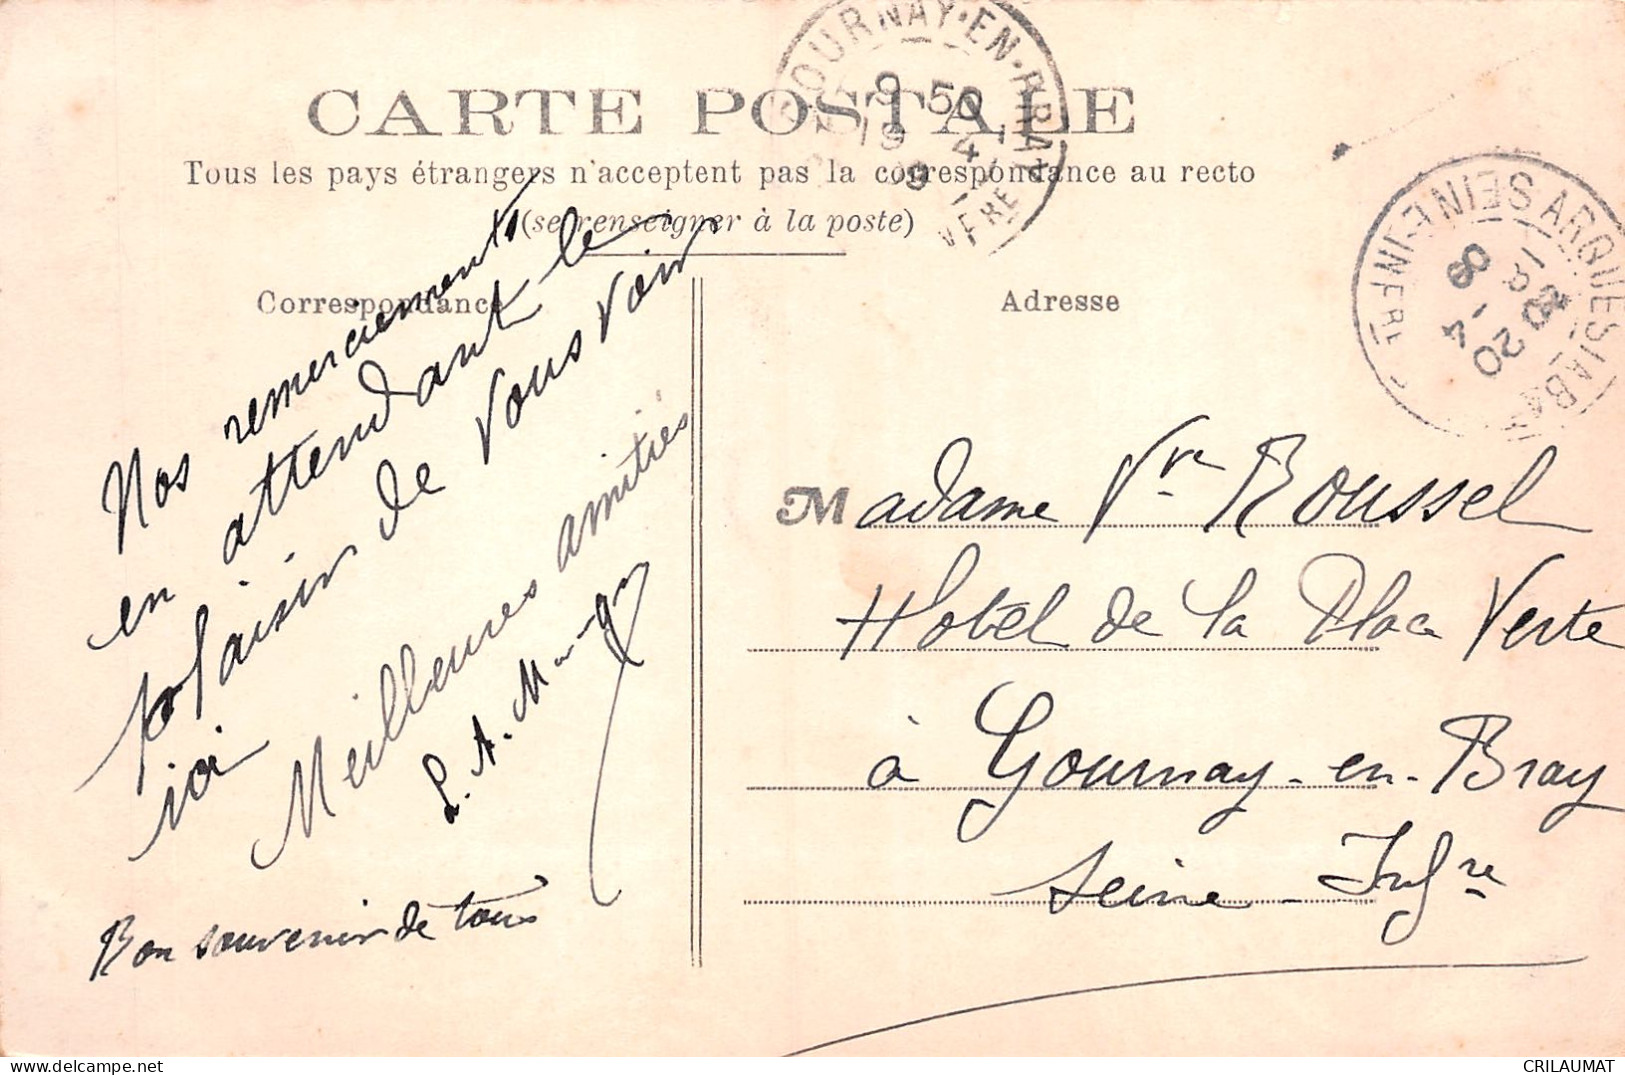 CARTE POSTALE
Tous les pays étrangers n'acceptent pas la correspondance au recto
(se renseigner à la poste)
Correspondance
Adresse
GOURNAY-EN-BRAY
9 50
19 4
09
ARQUES LA BA
SEINE INFRE
20
4
09
Nos remerciements
en attendant le
plaisir de vous voir
ici
Meilleures amitiés
L. A. M
Bon souvenir de tous
Madame Vve Roussel
Hôtel de la Place Verte
à Gournay-en-Bray
Seine-Infre
CRILAUMAT